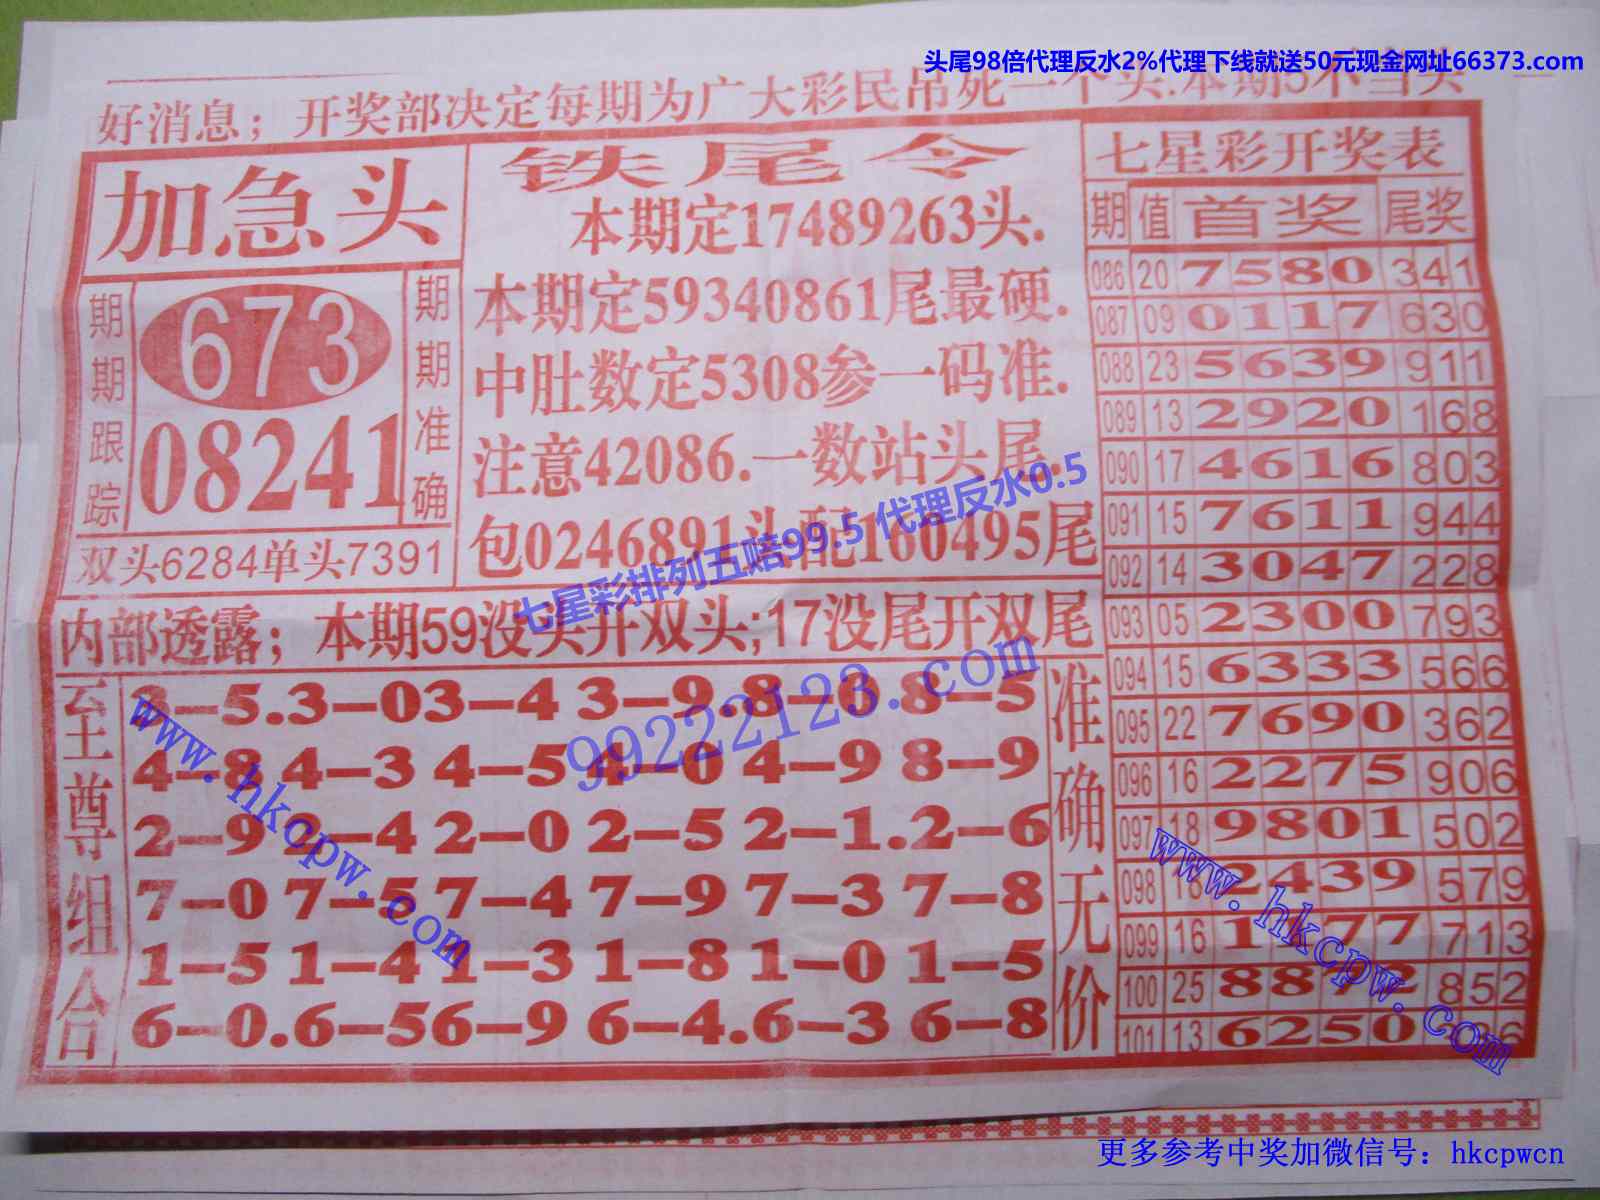 头尾98倍代理反水2%代理下线就送50元现金网址66373.com
好消息；开奖部决定每期为广大彩民吊死一个头.本期5不当头
加急头
期期跟踪
673
08241
期期准确
双头6284单头7391
铁尾令
本期定17489263头.
本期定59340861尾最硬.
中肚数定5308参一码准.
注意42086.一数站头尾.
包0246891头配160495尾
七星彩排列五赔99.5 代理反水0.5
内部透露；本期59没头开双头;17没尾开双尾
99222123.com
至尊组合
3-5.3-03-4 3-9.8-3 8-5
4-8 4-3 4-5 4-0 4-9 8-9
2-9 2-4 2-0 2-5 2-1.2-6
7-0 7-5 7-4 7-9 7-3 7-8
1-5 1-4 1-3 1-8 1-0 1-5
6-0.6-56-9 6-4.6-3 6-8
准确无价
www.hkcpw.com
七星彩开奖表
期 值 首奖 尾奖
086 20 7580 341
087 09 0117 630
088 23 5639 911
089 13 2920 168
090 17 4616 803
091 15 7611 944
092 14 3047 228
093 05 2300 793
094 15 6333 566
095 22 7690 362
096 16 2275 906
097 18 9801 502
098 18 2439 579
099 16 1177 713
100 25 8872 852
101 13 6250 6
www.hkcpw.com
更多参考中奖加微信号：hkcpwcn